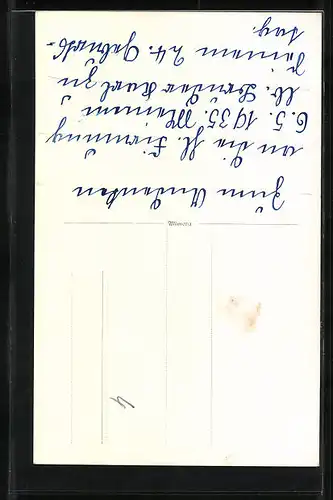 Zum Andenken
an die hl. Firmung
6. 5. 1935. Meinem
lb. Bruder Karl zu
seinem 24. Geburts-
tag.
4